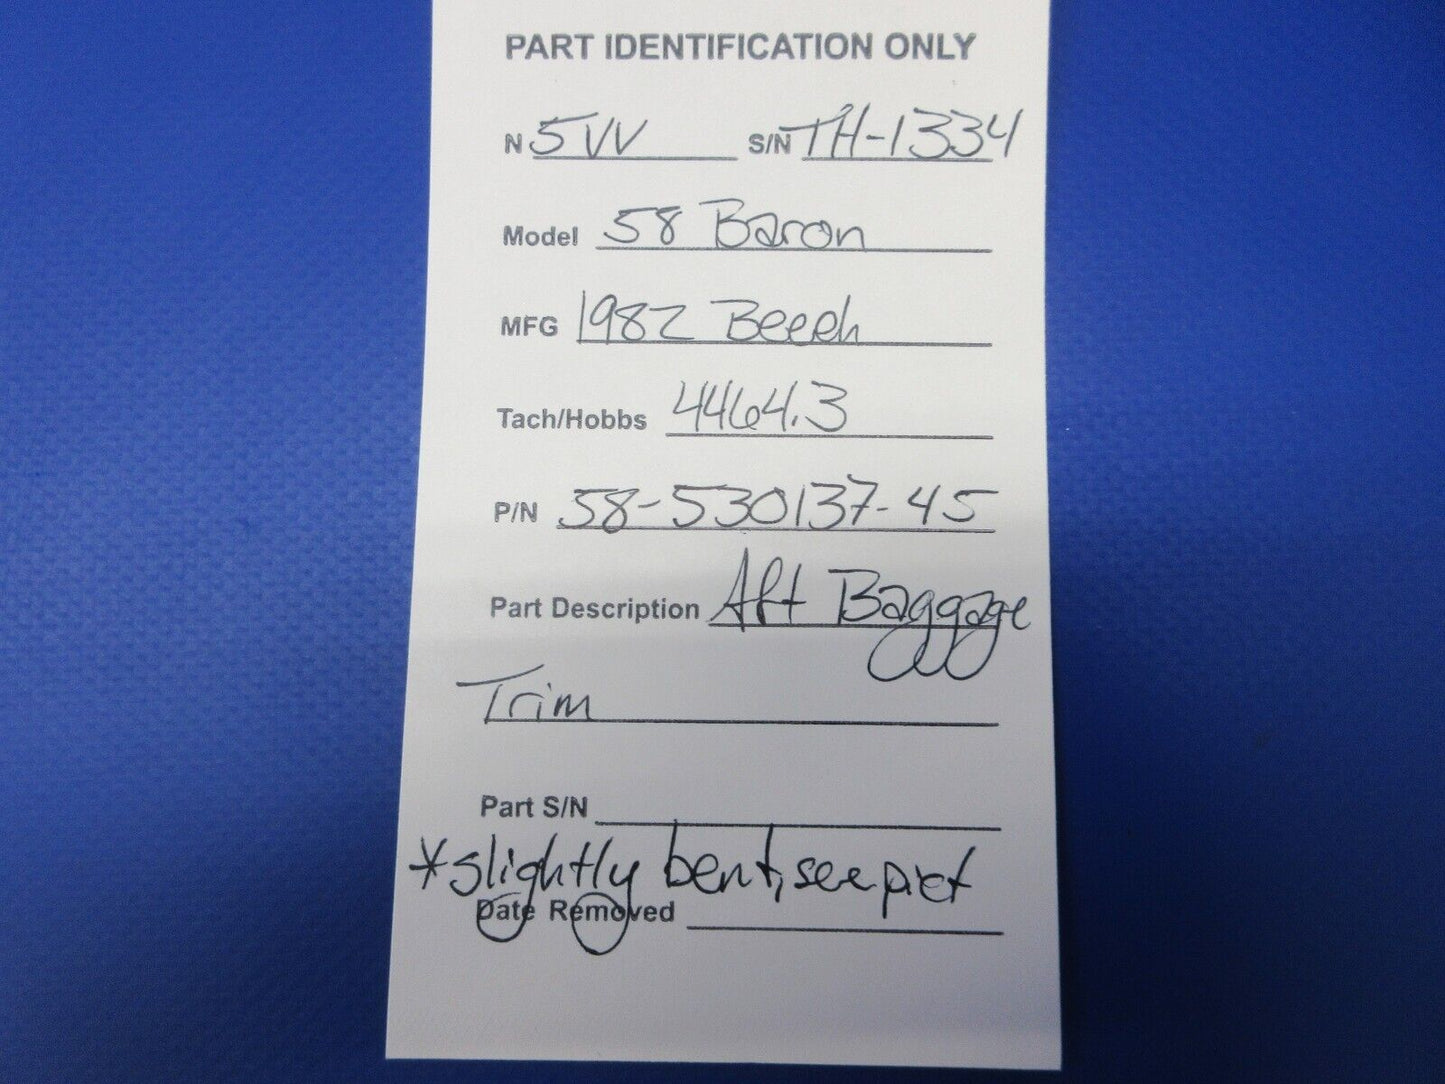 PART IDENTIFICATION ONLY
N 5VV S/N TH-1334
Model 58 Baron
MFG 1982 Beech
Tach/Hobbs 4464.3
P/N 58-530137-45
Part Description Aft Baggage
Trim
Part S/N
*slightly bent, see pict
Date Removed